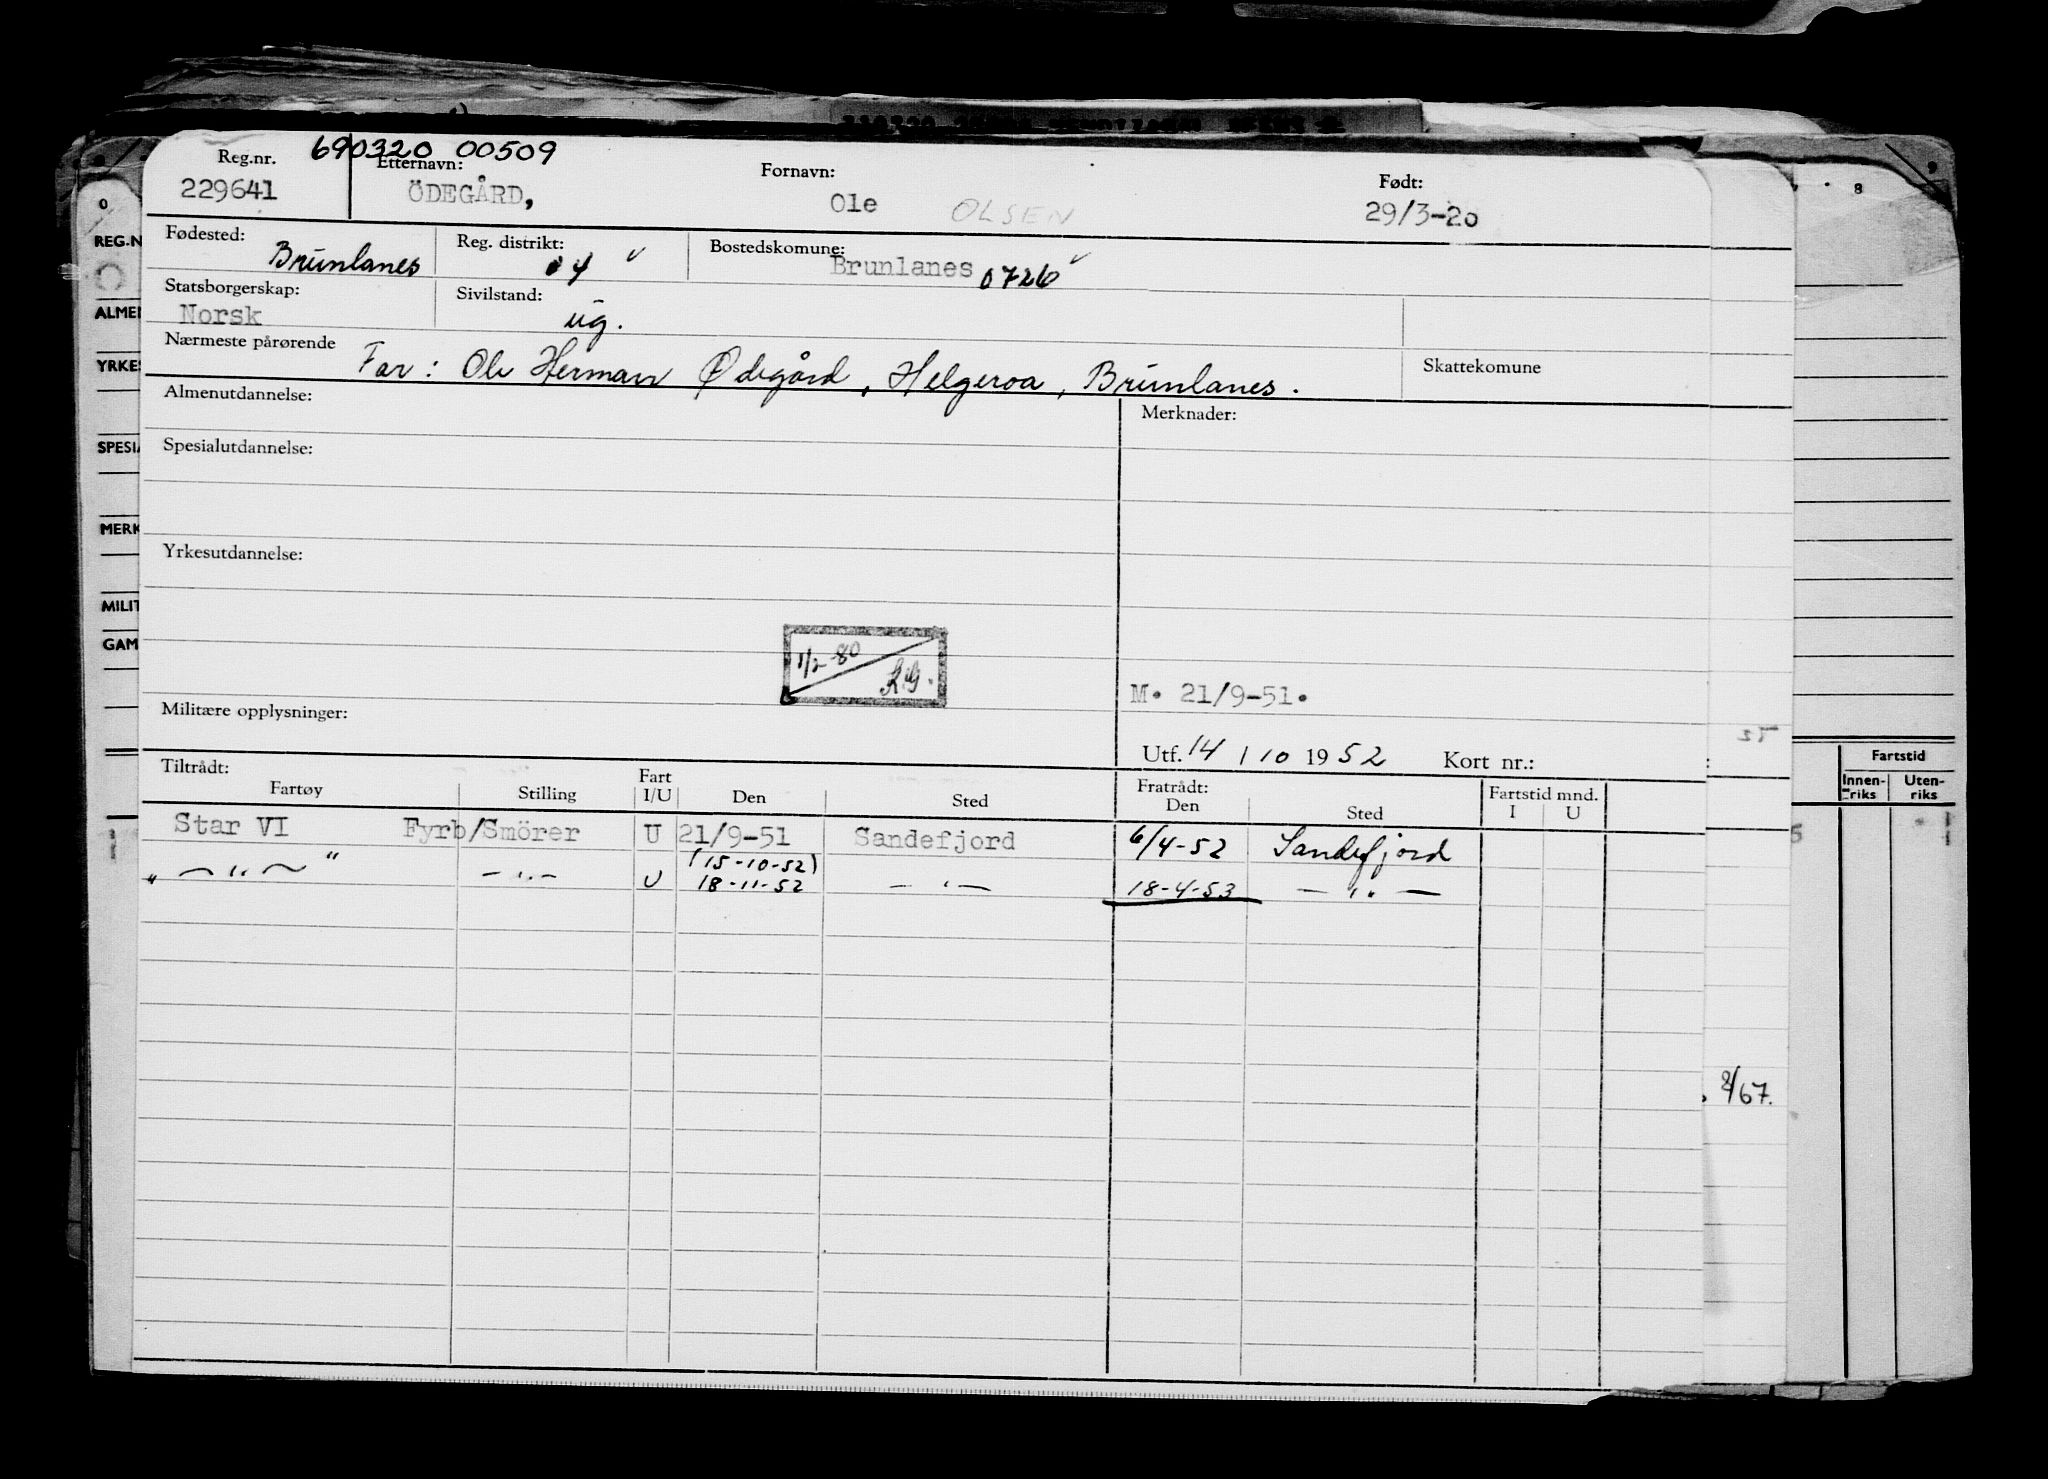 690320 00509
Reg.nr. Etternavn: Fornavn: Født:
229641 ÖDEGÅRD, Ole OLSEN 29/3-20
Fødested: Reg. distrikt: Bostedskomune:
Brunlanes 04 Brunlanes 0726
Statsborgerskap: Sivilstand:
Norsk ug.
Nærmeste pårørende Skattekomune
Far: Ole Herman Ødegård, Helgeroa, Brunlanes.
Almenutdannelse: Merknader:
Spesialutdannelse:
Yrkesutdannelse:
1/2-80
K.G.
M. 21/9-51.
Militære opplysninger:
Utf. 14 / 10 1952 Kort nr.:
Tiltrådt: Fratrådt:
Fartøy Stilling Fart I/U Den Sted Den Sted Fartstid mnd. I U
Star VI Fyrb/Smörer U 21/9-51 Sandefjord 6/4-52 Sandefjord
(15-10-52)
" — " — " — " — U 18-11-52 — " — 18-4-53 — " —
REG.N
ALMEN
YRKES
SPESIA
MERK
MILIT
GAM
8
Fartstid
Innen-riks Uten-riks
8/67.